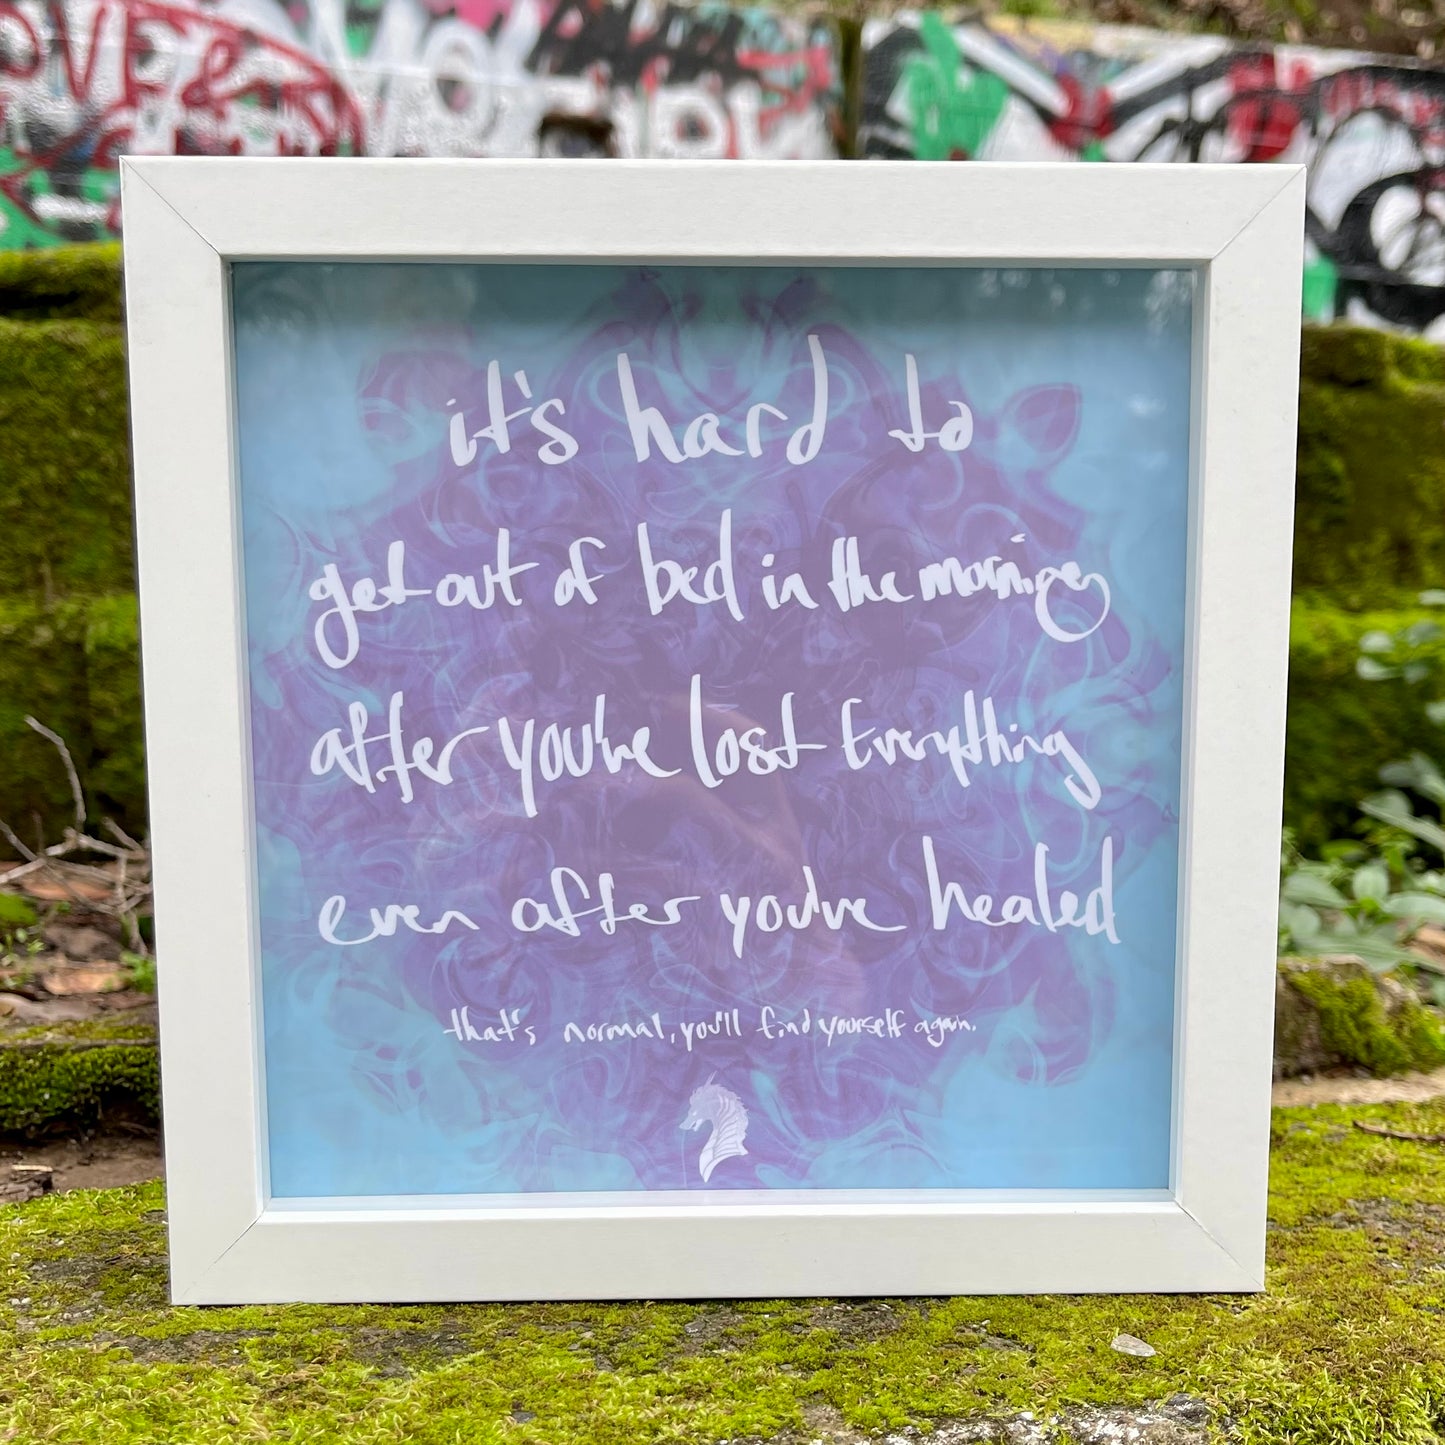 it's hard to
get out of bed in the morning
after you've lost Everything
even after you've healed
that's normal, you'll find yourself again.